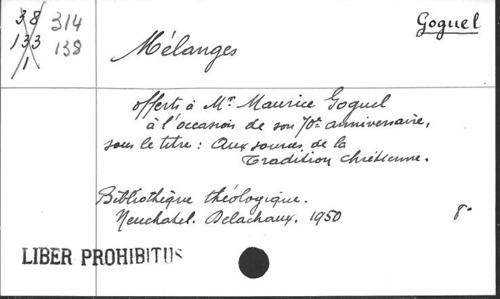 38 314
133 138
1
Goguel
Mélanges
offerts à Mr Maurice Goguel
à l'occasion de son 70e anniversaire,
sous le titre: Aux sources de la
Tradition chrétienne.
Bibliothèque théologique.
Neuchatel. Delachaux. 1950 8°
LIBER PROHIBITUS